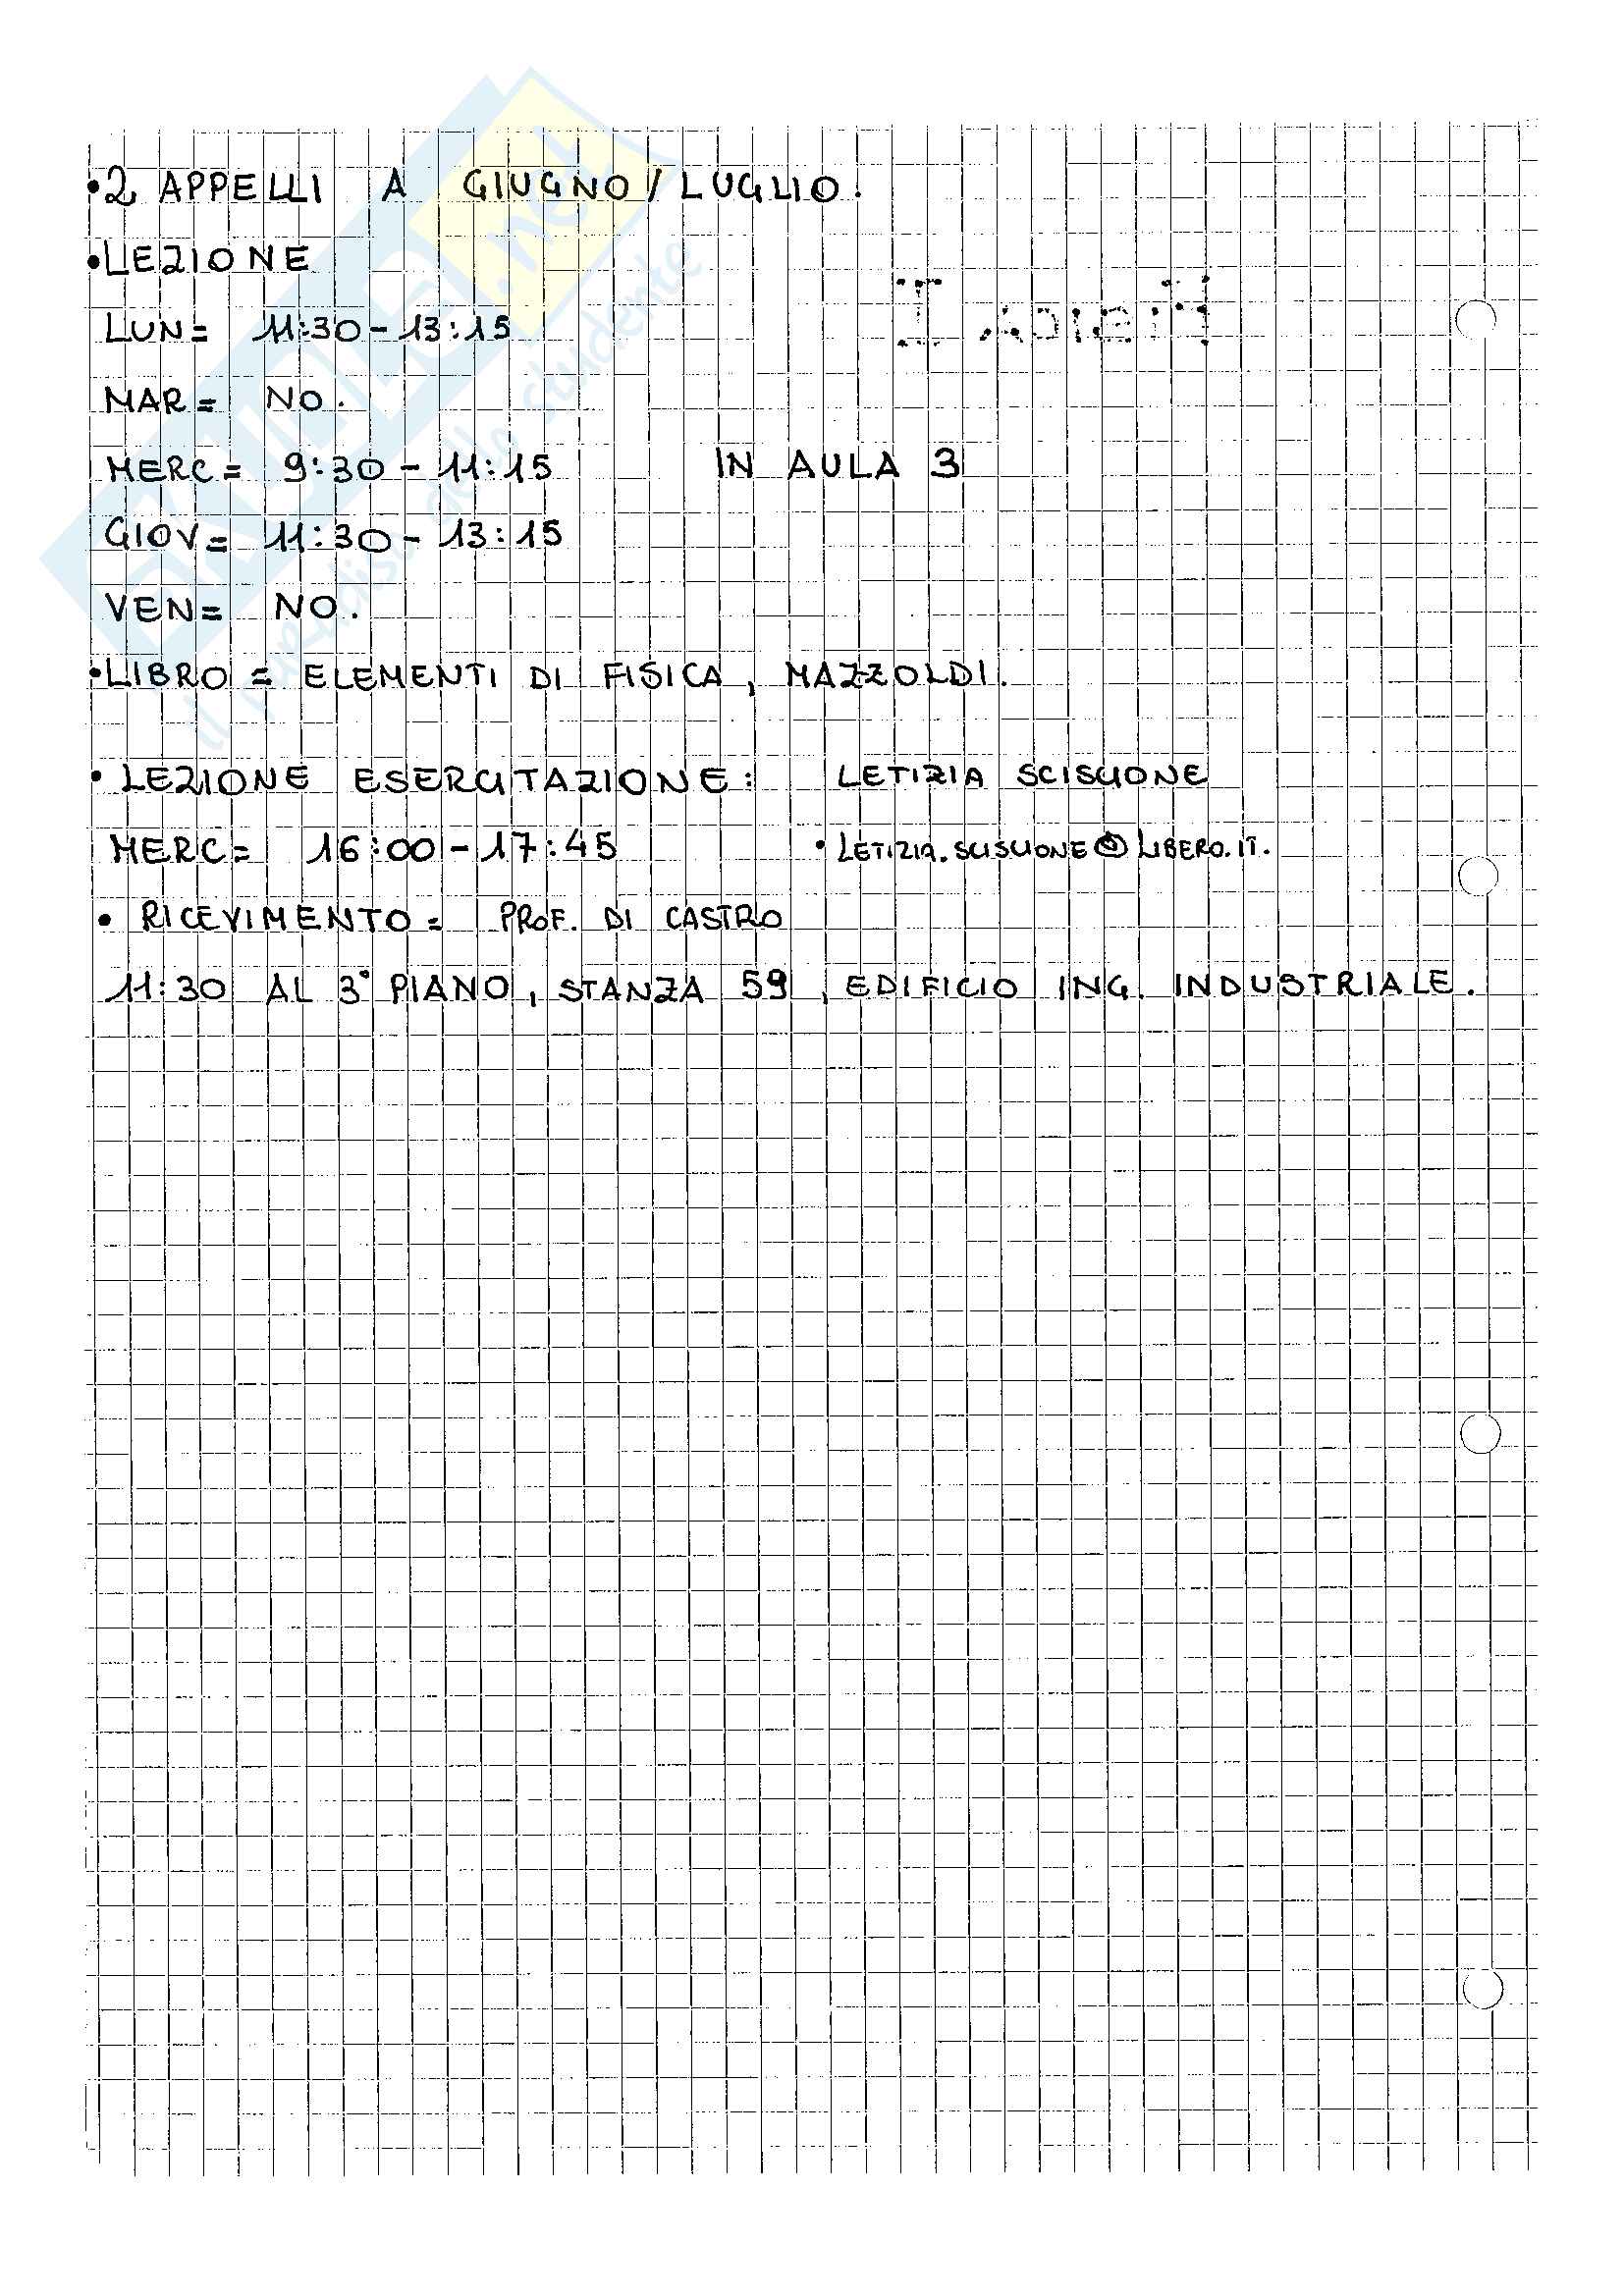 •2 APPELLI A GIUGNO/LUGLIO.
•LEZIONE
LUN= 11:30-13:15
MAR= NO.
MERC= 9:30-11:15 IN AULA 3
GIOV= 11:30-13:15
VEN= NO.
•LIBRO = ELEMENTI DI FISICA, MAZZOLDI.
• LEZIONE ESERCITAZIONE: LETIZIA SCISCIONE
MERC= 16:00-17:45 • LETIZIA.SCISCIONE@LIBERO.IT.
• RICEVIMENTO= PROF. DI CASTRO
11:30 AL 3° PIANO, STANZA 59, EDIFICIO ING. INDUSTRIALE.